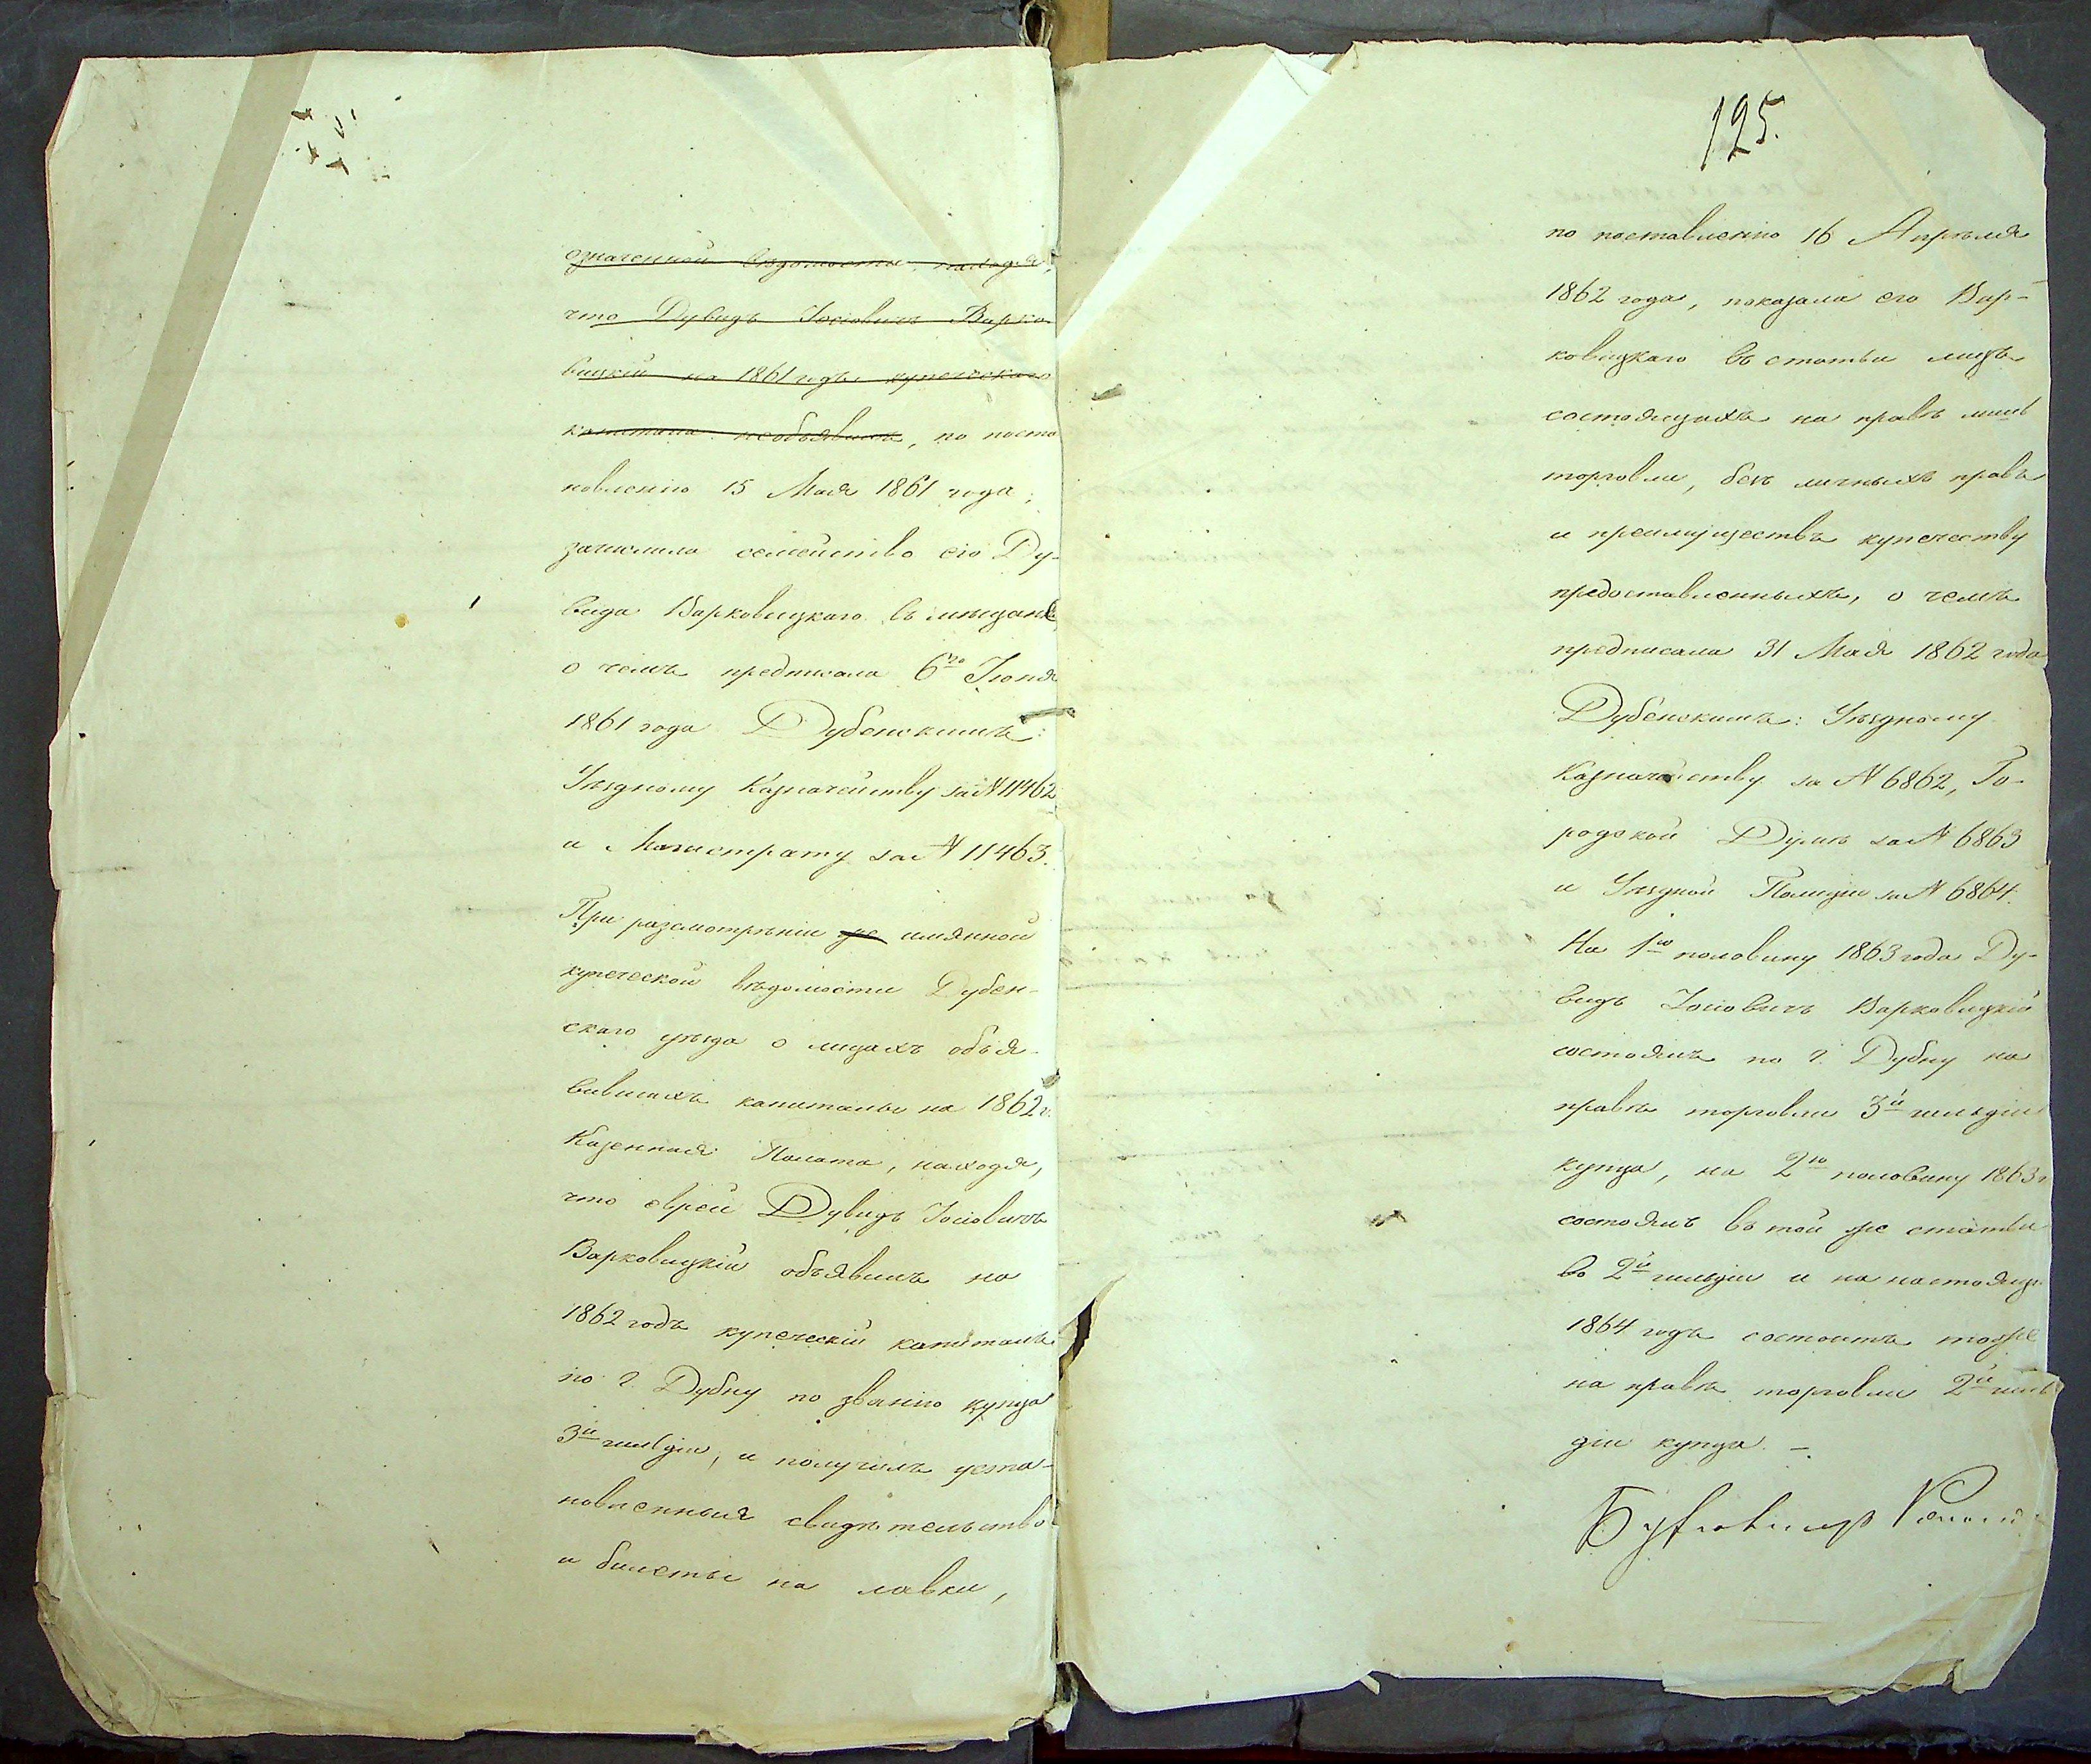 означенной вѣдомости, находя,
что Дувидъ Іосіовичъ Варко-
вицкій на 1861 годъ купеческаго
капитала необъявилъ, по поста
новленію 15 Мая 1861 года,
зачислила семейство его Ду-
вида Варковицкаго въ мѣщане,
о чемъ предписала 6го Іюня
1861 года Дубенскимъ:
Уѣздному Казначейству за № 11462
и Магистрату за № 11463.
При разсмотрѣніи же имянной
купеческой вѣдомости Дубен-
скаго уѣзда о лицахъ объя-
вившихъ капиталы на 1862 г.
Казенная Палата, находя,
что еврей Дувидъ Іосіовичъ
Варковицкій объявилъ на
1862 годъ купеческій капиталъ
по г. Дубну по званію купца
3й гильдіи, и получилъ уста-
новленныя свидѣтельство
и билеты на лавки,
125.
по поставленію 16 Апрѣля
1862 года, показала его Вар-
ковицкаго въ статьи лицъ
состоящихъ на правѣ лишь
торговли, безъ личныхъ правъ
и преимуществъ купечеству
предоставленныхъ, о чемъ
предписала 31 Мая 1862 года
Дубенскимъ: Уѣздному
Казначейству за № 6862, Го-
родской Думѣ за № 6863
и Уѣздной Полиціи за № 6864.
На 1ю половину 1863 года Ду-
видъ Іосіовичъ Варковицкій
состоялъ по г. Дубну на
правѣ торговли 3й гильдіи
купца, на 2ю половину 1863 г
состоялъ въ той же статьи
во 2й гильдіи и на настоящ.
1864 годъ состоитъ тоже
на правѣ торговли 2й гиль
діи купца. –